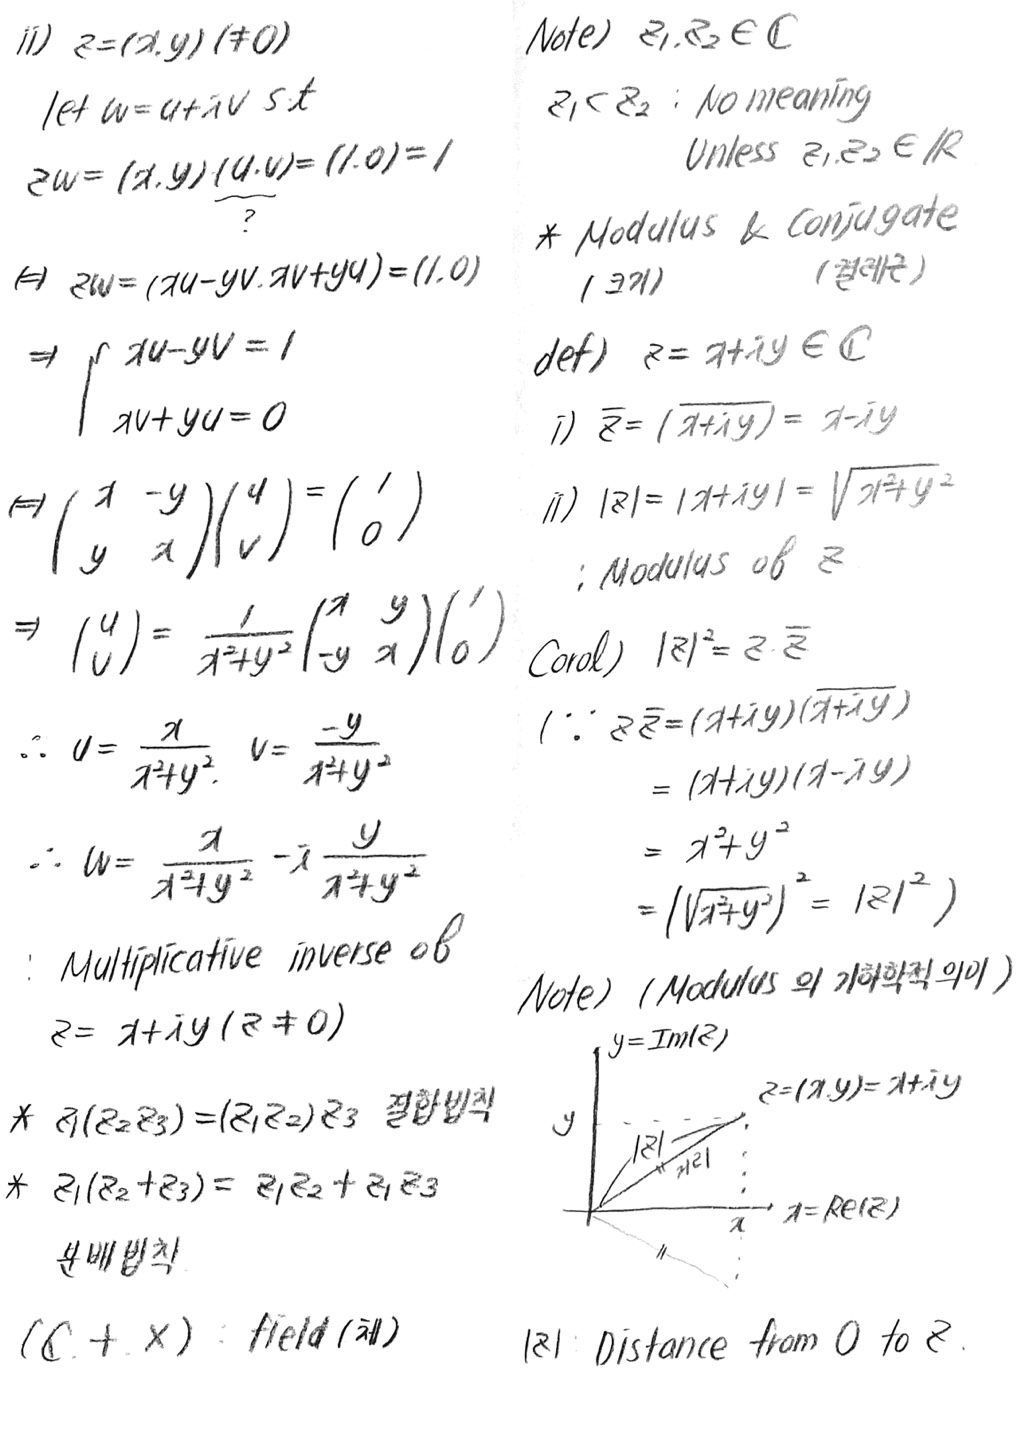 ii) z=(x.y) (≠0)
let w=u+iv s.t
zw=(x.y)·(u.v)=(1.0)=1
?
⇔ zw=(xu-yv.xv+yu)=(1.0)
⇒ { xu-yv=1
xv+yu=0
⇔ (x -y
y x)(u
v)=(1
0)
⇒ (u
v)= 1/(x²+y²) (x y
-y x)(1
0)
∴ u= x/(x²+y²). v= -y/(x²+y²)
∴ w= x/(x²+y²) -i y/(x²+y²)
: Multiplicative inverse of
z= x+iy (z≠0)
* z₁(z₂z₃)=(z₁z₂)z₃ 결합법칙
* z₁(z₂+z₃)= z₁z₂+z₁z₃
분배법칙
(ℂ. +. ×) : field(체)
Note) z₁.z₂∈ℂ
z₁<z₂ : No meaning
Unless z₁.z₂∈ℝ
* Modulus & Conjugate
(크기) (켤레근)
def) z= x+iy∈ℂ
i) z̅=(x+iy)‾= x-iy
ii) |z|=|x+iy|=√(x²+y²)
: Modulus of z
Corol) |z|²=z·z̅
(∵ zz̅=(x+iy)(x+iy)‾
=(x+iy)(x-iy)
= x²+y²
=(√(x²+y²))²= |z|²)
Note) (Modulus 의 기하학적 의미)
y=Im(z)
z=(x.y)=x+iy
y
|z|
|z|
x
x=Re(z)
|z|: Distance from 0 to z.